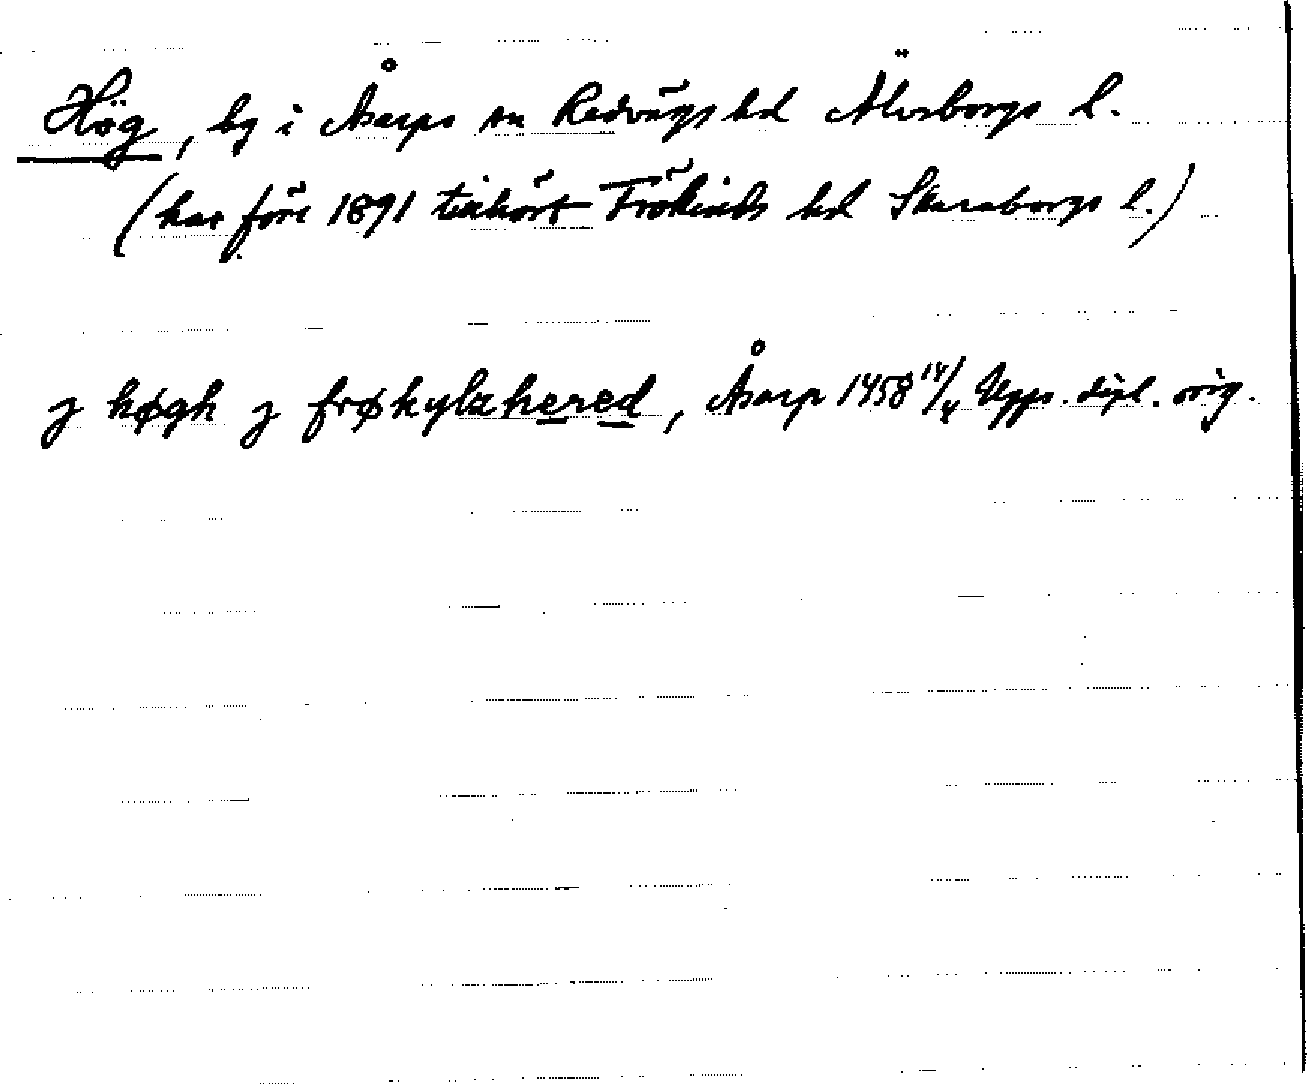 Hög, by i Åsarps sn Redvägs hd Älvsborgs l.
(har före 1891 tillhört Frökinds hd Skaraborgs l.)
j høgh j frøkylzhered, Åsarp 1458 14/4 Upps. dipl. orig.